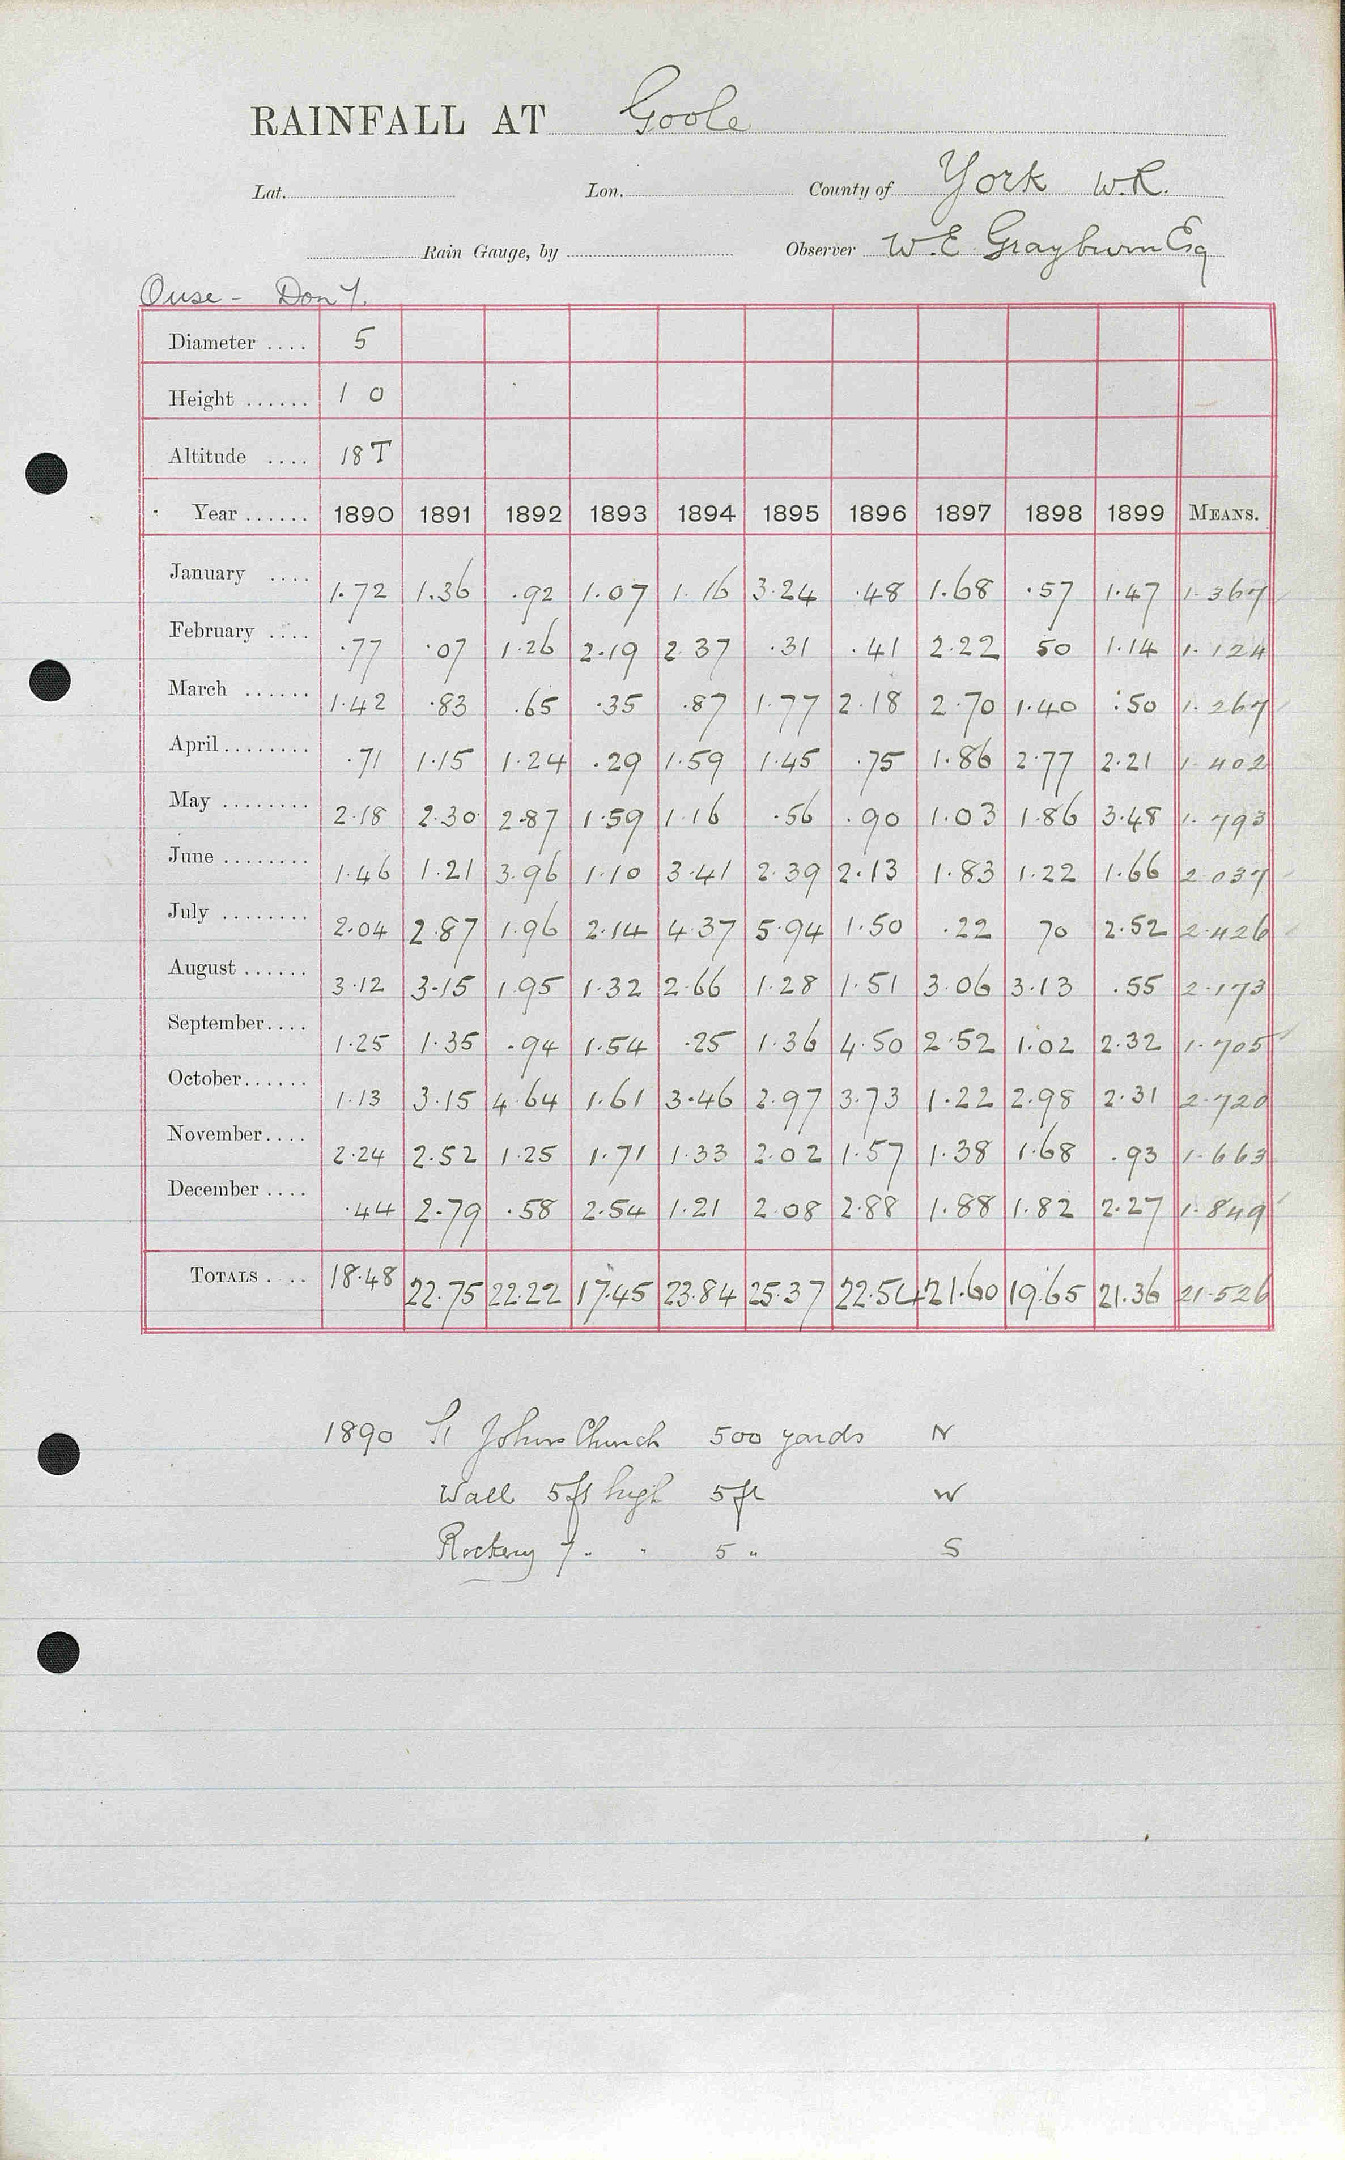 RAINFALL AT Goole
Lat. Lon. County of York W.R.
Rain Gauge, by Observer W.E. Grayburn Esq
Ouse - Don Y.
Diameter .... 5
Height ...... 1 0
Altitude .... 18 T
Year ...... 1890 1891 1892 1893 1894 1895 1896 1897 1898 1899 MEANS.
January .... 1.72 1.36 .92 1.07 1.16 3.24 .48 1.68 .57 1.47 1.367
February .... .77 .07 1.26 2.19 2.37 .31 .41 2.22 50 1.14 1.124
March ...... 1.42 .83 .65 .35 .87 1.77 2.18 2.70 1.40 .50 1.267
April ........ .71 1.15 1.24 .29 1.59 1.45 .75 1.86 2.77 2.21 1.402
May ........ 2.18 2.30 2.87 1.59 1.16 .56 .90 1.03 1.86 3.48 1.793
June ........ 1.46 1.21 3.96 1.10 3.41 2.39 2.13 1.83 1.22 1.66 2.037
July ........ 2.04 2.87 1.96 2.14 4.37 5.94 1.50 .22 70 2.52 2.426
August ...... 3.12 3.15 1.95 1.32 2.66 1.28 1.51 3.06 3.13 .55 2.173
September.... 1.25 1.35 .94 1.54 .25 1.36 4.50 2.52 1.02 2.32 1.705
October...... 1.13 3.15 4.64 1.61 3.46 2.97 3.73 1.22 2.98 2.31 2.720
November.... 2.24 2.52 1.25 1.71 1.33 2.02 1.57 1.38 1.68 .93 1.663
December .... .44 2.79 .58 2.54 1.21 2.08 2.88 1.88 1.82 2.27 1.849
TOTALS .... 18.48 22.75 22.22 17.45 23.84 25.37 22.54 21.60 19.65 21.36 21.526
1890 St Johns Church 500 yards N
Wall 5ft high 5ft W
Rockery 7 " " 5 " S